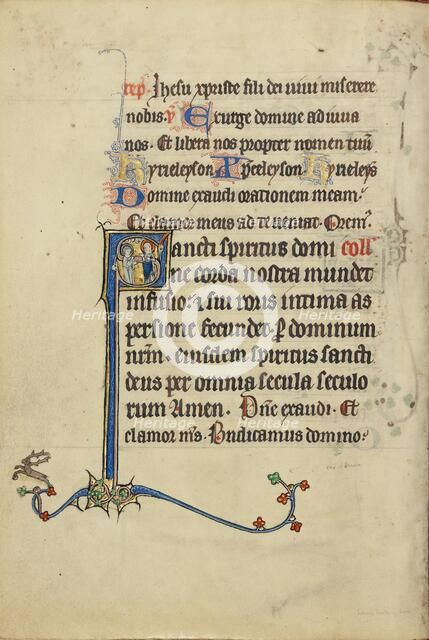 rep. Ihesu xpriste fili dei uiui miserere
nobis. V Exurge domine adiuua
nos. Et libera nos propter nomen tuū
Kyrieleyson Xpeeleyson. Kyrieleys
Domine exaudi orationem meam.
Et clamor meus ad te ueniat. Orem⁹.
Sancti spiritus domi coll
ne corda nostra mundet
infusio. ⁊ sui roris intima as
persione fecundet. P dominum
nr̄m. eiusdem spiritus sancti
deus per omnia secula seculo
rum Amen. Dn̄e exaudi. Et
clamor m̄s. Bn̄dicamus domino.
Heritage
Heritage
Heritage
Heritage
Heritage
Heritage